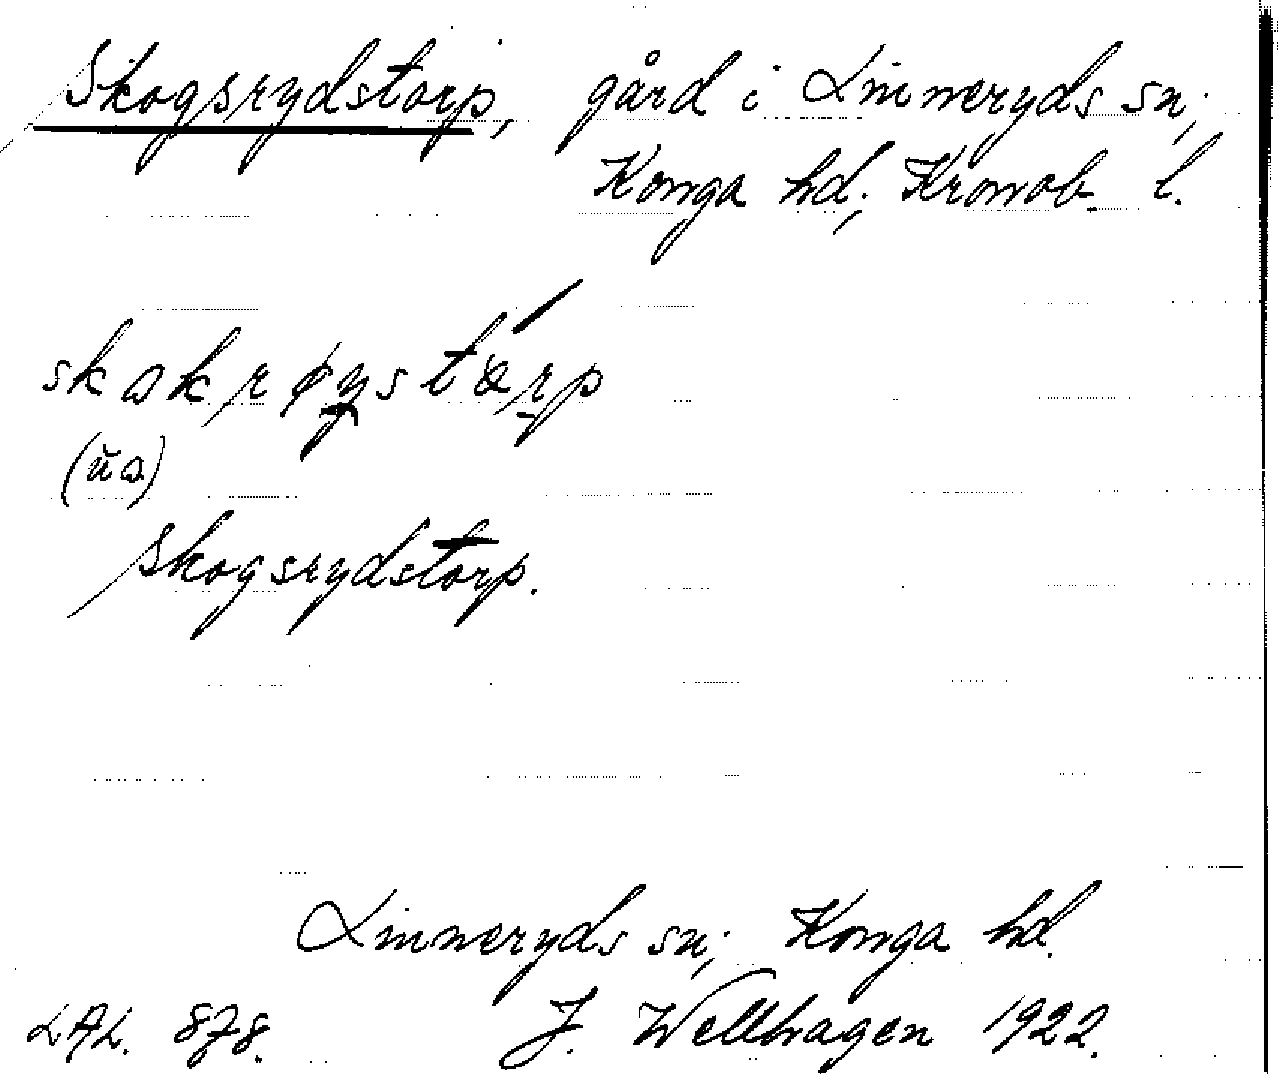 Skogsrydstorp, gård i Linneryds sn;
Konga hd; Kronob. l.
skogsrydstorp.
Linneryds sn; Konga hd.
LAL. 878. J. Wellhagen 1922.